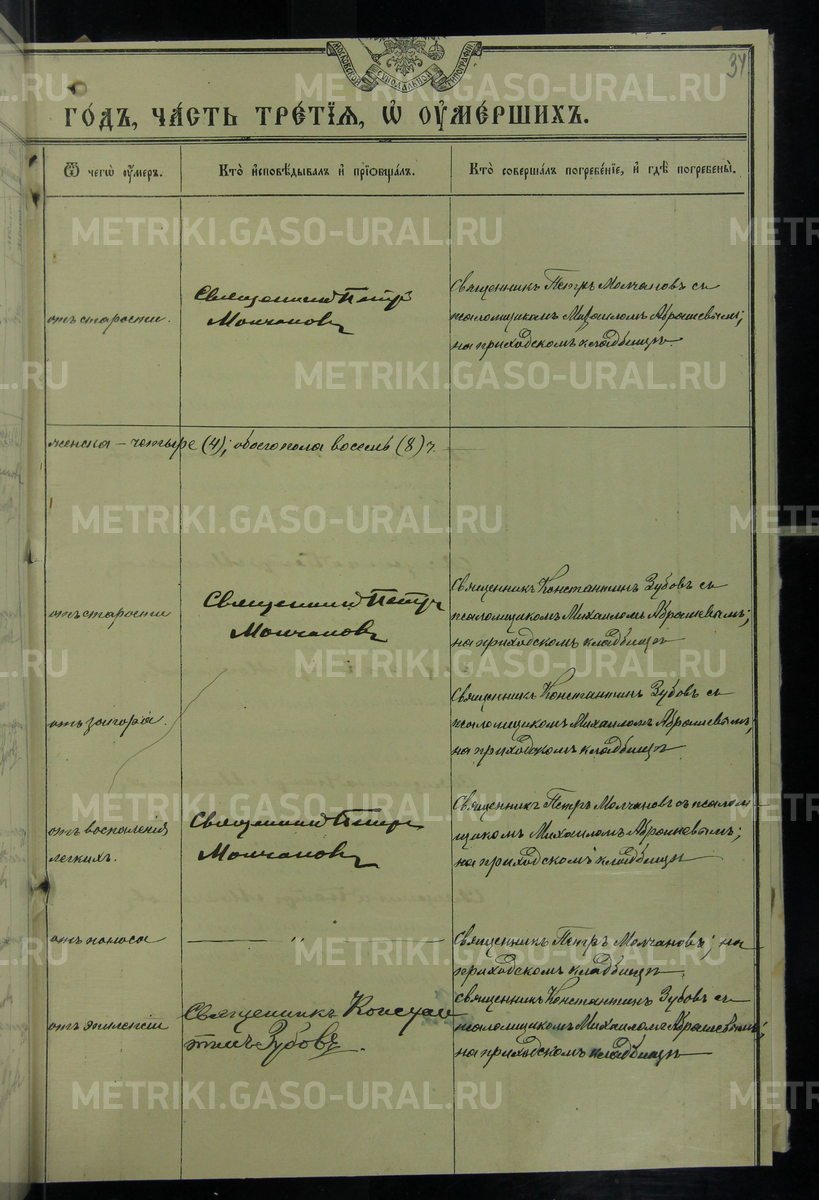 МОСКОВСКОЙ СѴНОДАЛЬНОЙ ТИПОГРАФІИ
34
ГО́ДЪ, ЧА́СТЬ ТРЕ́ТІѦ, Ѡ҆ ОУ҆МЕ́РШИХЪ.
Ѿ чегѡ̀ оу҆́меръ.
Кто̀ и҆сповѣ́дывалъ и҆ прїѡбща́лъ.
Кто̀ соверша́лъ погребе́нїе, и҆ гдѣ̀ погребены̀.
отъ старости.
Священникъ Петръ
Молчановъ
Священникъ Петръ Молчановъ съ
псаломщикомъ Михаиломъ Аврашевымъ;
на приходскомъ кладбищѣ.
женска – четыре (4); обоего пола восемь (8) ч.
отъ старости
Священникъ Петръ
Молчановъ
Священникъ Константинъ Зубовъ съ
псаломщикомъ Михаиломъ Аврашевымъ;
на приходскомъ кладбищѣ
отъ
Священникъ Константинъ Зубовъ съ
псаломщикомъ Михаиломъ Аврашевымъ;
на приходскомъ кладбищѣ
отъ воспаленія
легкихъ.
Священникъ Петръ
Молчановъ
Священникъ Петръ Молчановъ съ псалом
щикомъ Михаиломъ Аврашевымъ;
на приходскомъ кладбищѣ
отъ поноса
— „ —
Священникъ Петръ Молчановъ; на
приходскомъ кладбищѣ.
отъ эпилепсіи
Священникъ Констан
тинъ Зубовъ.
Священникъ Константинъ Зубовъ съ
псаломщикомъ Михаиломъ Аврашевымъ;
на приходскомъ кладбищѣ
METRIKI.GASO-URAL.RU